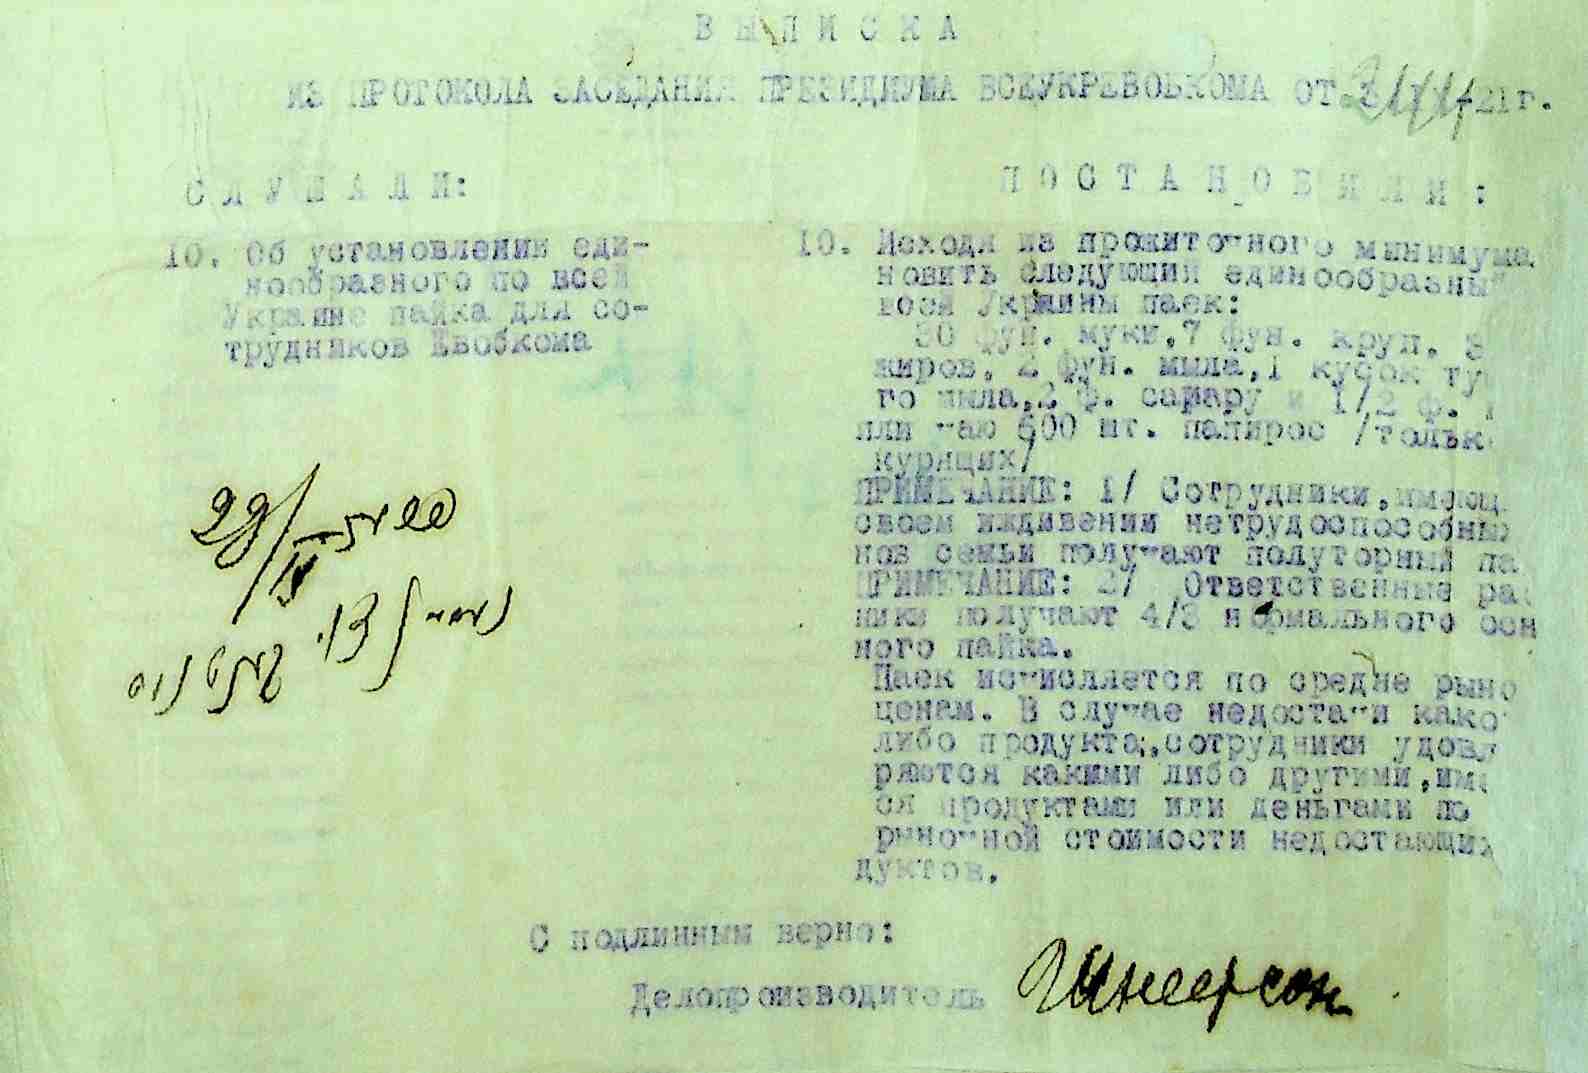 ВЫПИСКА
ИЗ ПРОТОКОЛА ЗАСЕДАНИЯ ПРЕЗИДИУМА ВСЕУКРЕВОБЩКОМА ОТ 21г.
СЛУШАЛИ:
10. Об установлении еди-
нообразного по всей
Украине пайка для со-
трудников Евобкома
ПОСТАНОВИЛИ:
10. Исходя из прожиточного минимума
новить следующий единообразный
всей Украины паек:
30 фун. муки, 7 фун. круп. 3
жиров, 2 фун. мыла, 1 кусок ту
го мыла, 2 ф. сахару и 1/2 ф.
или чаю 600 шт. папирос /тольк
курящих/
ПРИМЕЧАНИЕ: 1/ Сотрудники, имеющ
своем иждивении нетрудоспособных
нов семьи получают полуторный па
ПРИМЕЧАНИЕ: 2/ Ответственные раб
ники получают 4/3 нормального осн
ного пайка.
Паек исчисляется по средне рыно
ценам. В случае недостачи како
либо продукта, сотрудники удовл
ряются какими либо другими, име
ся продуктами или деньгами по
рыночной стоимости недостающих
дуктов.
С подлинным верно:
Делопроизводитель